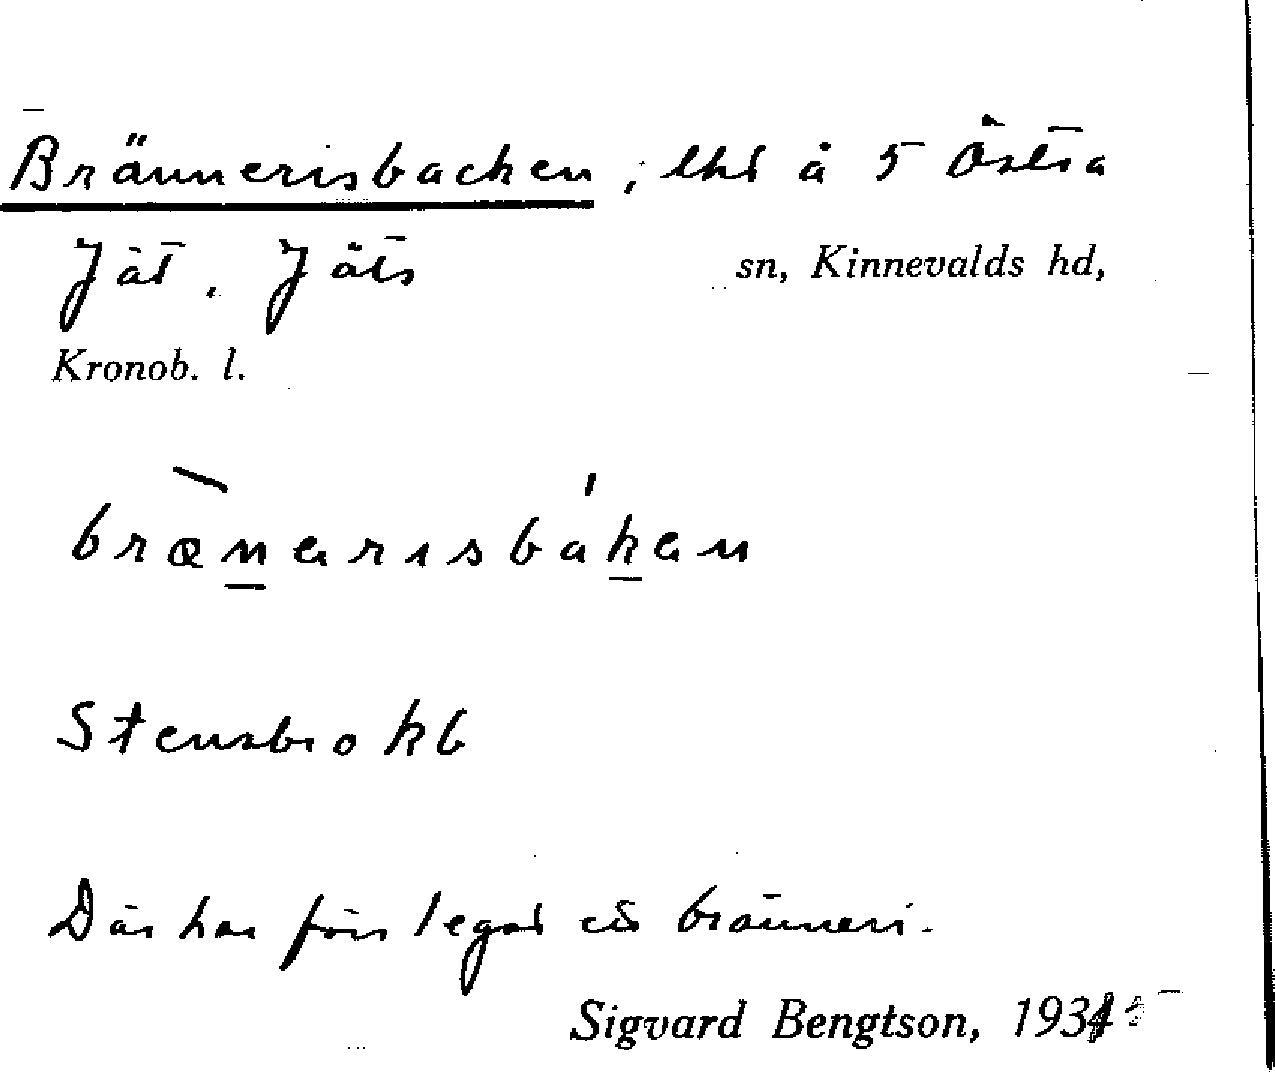 Brännerisbacken, lht å 5 Östra
Jät, Jäts sn, Kinnevalds hd,
Kronob. l.
brænarisbákan
Stensbrokb
Där har förr legat ett bränneri.
Sigvard Bengtson, 193